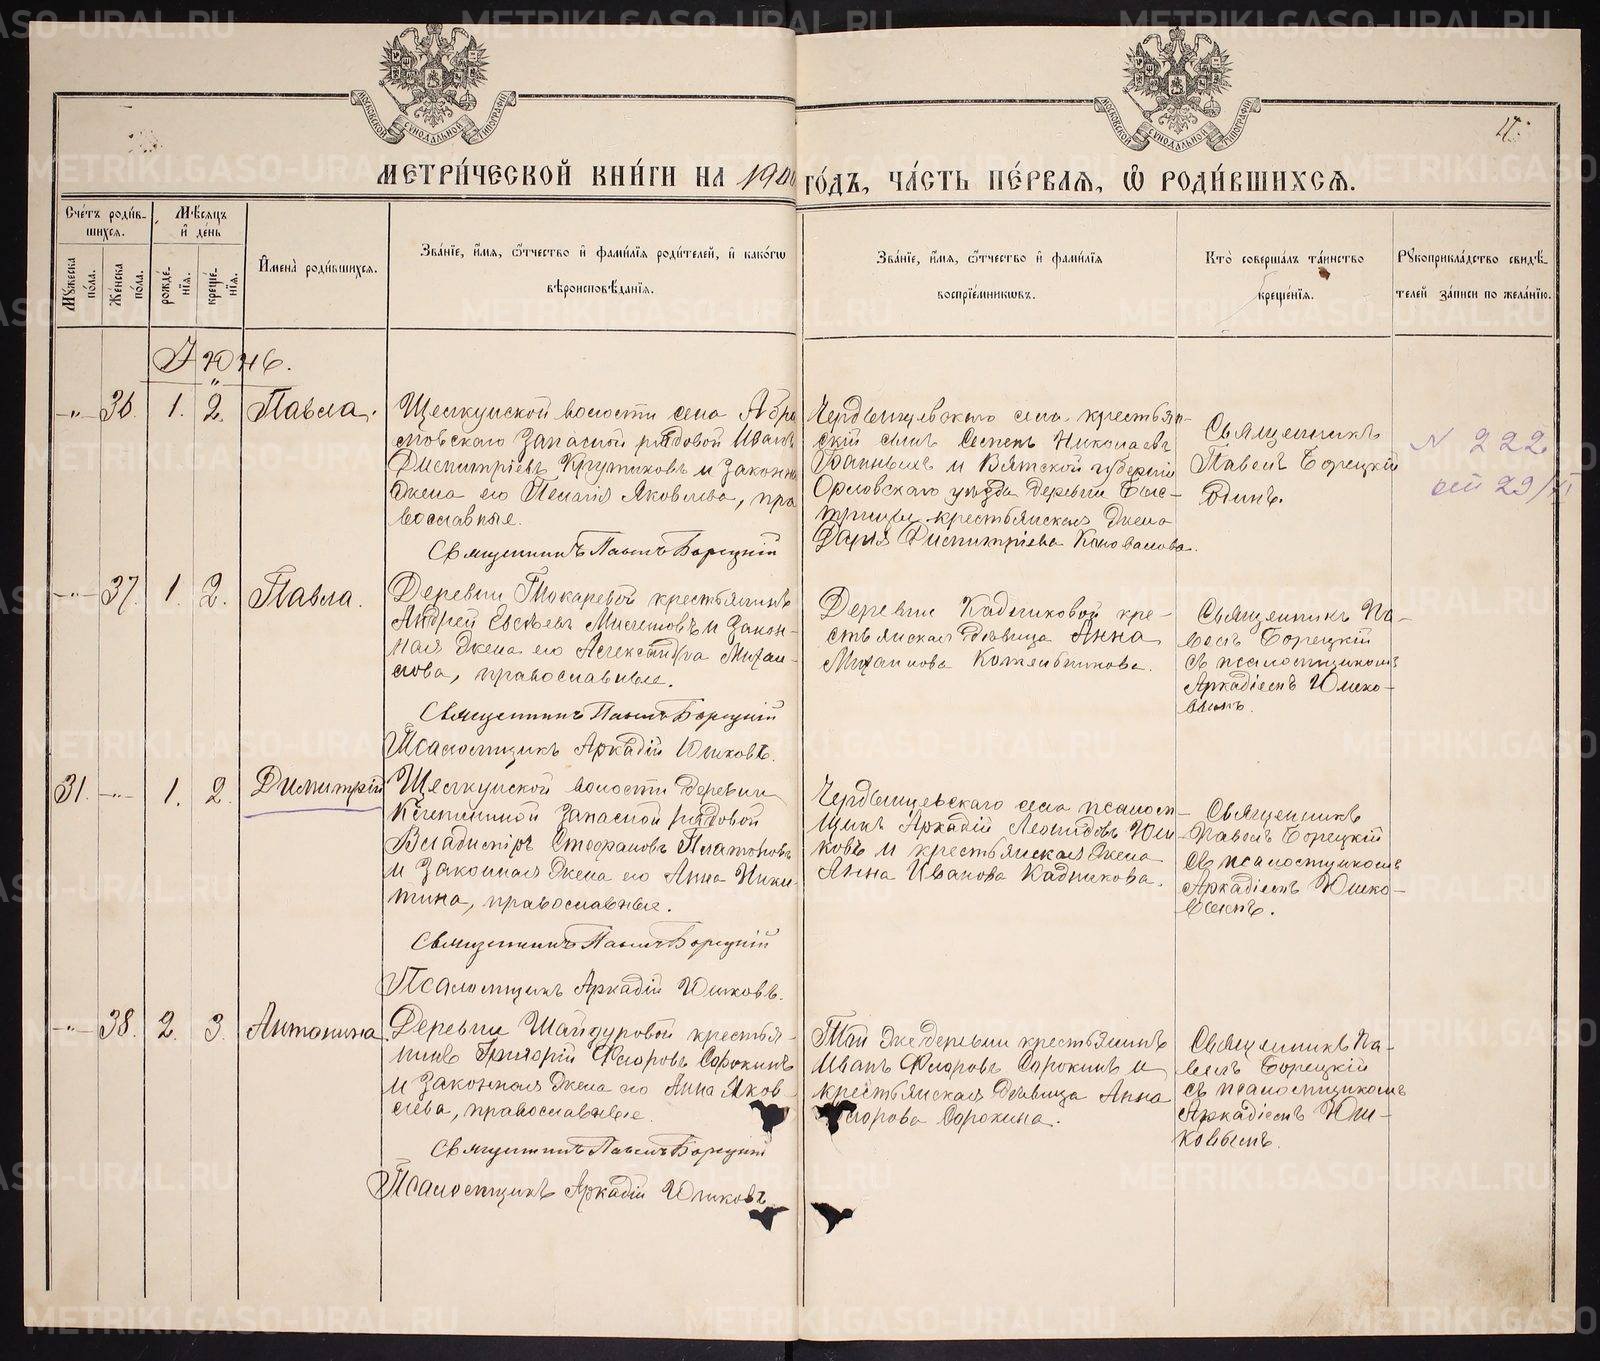 МЕТРИ́ЧЕСКОЙ КНИ́ГИ НА 190 ГО́ДЪ, ЧА́СТЬ ПЕ́РВАЯ, Ѡ҆ РОДИ́ВШИХСѦ.
МОСКОВСКОЙ СѴНОДАЛЬНОЙ ТИПОГРАФІИ
МОСКОВСКОЙ СѴНОДАЛЬНОЙ ТИПОГРАФІИ
Сче́тъ роди́в-
шихсѧ.
Мꙋ́жеска по́ла.
Же́нска по́ла.
Мѣ́сѧцъ
и҆ де́нь
рожде́-
нїѧ.
креще́-
нїѧ.
И҆мена̀ роди́вшихсѧ.
Зва́нїе, и҆́мѧ, ѻ҆́тчество и҆ фами́лїѧ роди́телей, и҆ како́гѡ
вѣроисповѣ́данїѧ.
Зва́нїе, и҆́мѧ, ѻ҆́тчество и҆ фами́лїѧ
воспрїе́мникѡвъ.
Кто̀ соверша́лъ та́инство
креще́нїѧ.
Рꙋкоприкла́дство свидѣ́-
телей за́писи по жела́нїю.
Іюнь.
-"- 36. 1. 2. Павла.
Щелкунской волости села Абра
мовскаго запасной рядовой Иванъ
Димитріевъ Крутиковъ и законна
жена его Пелагія Яковлева, пра
вославные.
Священникъ Павелъ Борецкій
Чердынцевскаго села крестьян-
скій сынъ Семенъ Николаевъ
и Вятской губерніи
Орловскаго уѣзда деревни Быс-
трицы крестьянская жена
Дарія Димитріева Коновалова.
Священникъ
Павелъ Борецкій
Одинъ.
N 222
29/XI
-"- 37. 1. 2. Павла.
Деревни Токаревой крестьянинъ
Андрей Евсѣевъ и закон-
ная жена его Александра Михаи-
лова, православные.
Священникъ Павелъ Борецкій
Псаломщикъ Аркадій Юшковъ.
Деревни Кадниковой кре-
стьянская дѣвица Анна
Михаилова Кожевникова.
Священникъ Па-
велъ Борецкій
съ псаломщикомъ
Аркадіемъ Юшко-
вымъ.
31. -"- 1. 2. Димитрій
Щелкунской волости деревни
запасной рядовой
Владиміръ Стефановъ Платоновъ
и законная жена его Анна Ники-
тина, православные.
Священникъ Павелъ Борецкій
Псаломщикъ Аркадій Юшковъ.
Чердынцевскаго села псалом-
щикъ Аркадій Леонидовъ Юш-
ковъ и крестьянская жена
Анна Иванова Кадникова.
Священникъ
Павелъ Борецкій
съ псаломщикомъ
Аркадіемъ Юшко-
вымъ.
-"- 38. 2. 3. Антонина
Деревни Шайдуровой крестья-
нинъ Григорій Флоровъ Сорокинъ
и законная жена его Анна Яков-
лева, православные.
Священникъ Павелъ Борецкій
Псаломщикъ Аркадій Юшковъ
Той же деревни крестьянинъ
Иванъ Флоровъ Сорокинъ и
крестьянская дѣвица Анна
Флорова Сорокина.
Священникъ Па-
велъ Борецкій
съ псаломщикомъ
Аркадіемъ Юш-
ковымъ.
METRIKI.GASO-URAL.RU